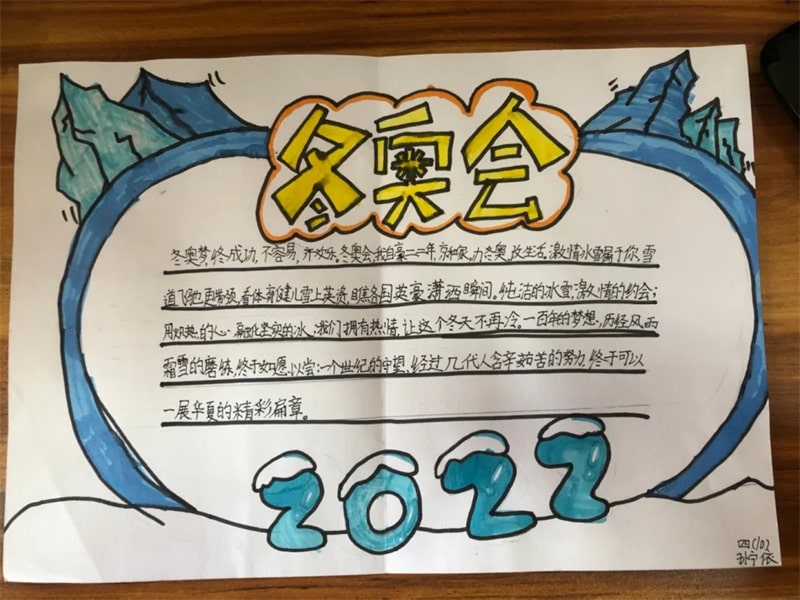 冬奥会
冬奥梦,终成功,不容易,齐欢乐。冬奥会,我自豪二二年,京和张,办冬奥,改生活,激情冰雪属于你,雪
道飞驰更带劲,看体育健儿雪上英姿,瞧各国英豪潇洒瞬间。纯洁的冰雪,激情的约会;
用炽热的心,融化坚实的冰,我们拥有热情,让这个冬天不再冷。一百年的梦想,历经风雨
霜雪的磨练,终于如愿以尝;一个世纪的守望,经过几代人含辛茹苦的努力,终于可以
一展华夏的精彩扁章。
2022
四(1)02
孙宁依